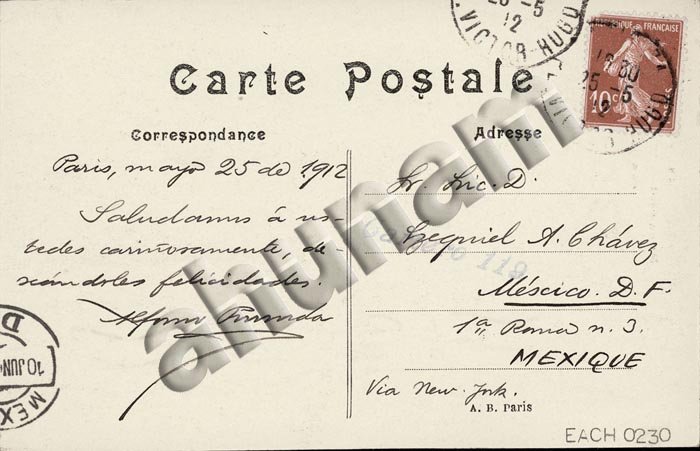 25-5
12
VICTOR-HUGO
RÉPUBLIQUE FRANÇAISE
10c
25-5
Carte Postale
Correspondance
Adresse
Paris, mayo 25 de 1912
Saludamos á us-
tedes cariñosamente, de-
seándoles felicidades.
Sr. Lic. D.
Ezequiel A. Chávez
México. D. F.
1a Roma n. 3.
MEXIQUE
Via New-York.
A. B. Paris
EACH 0230
10 JUN
MEX
ahunam